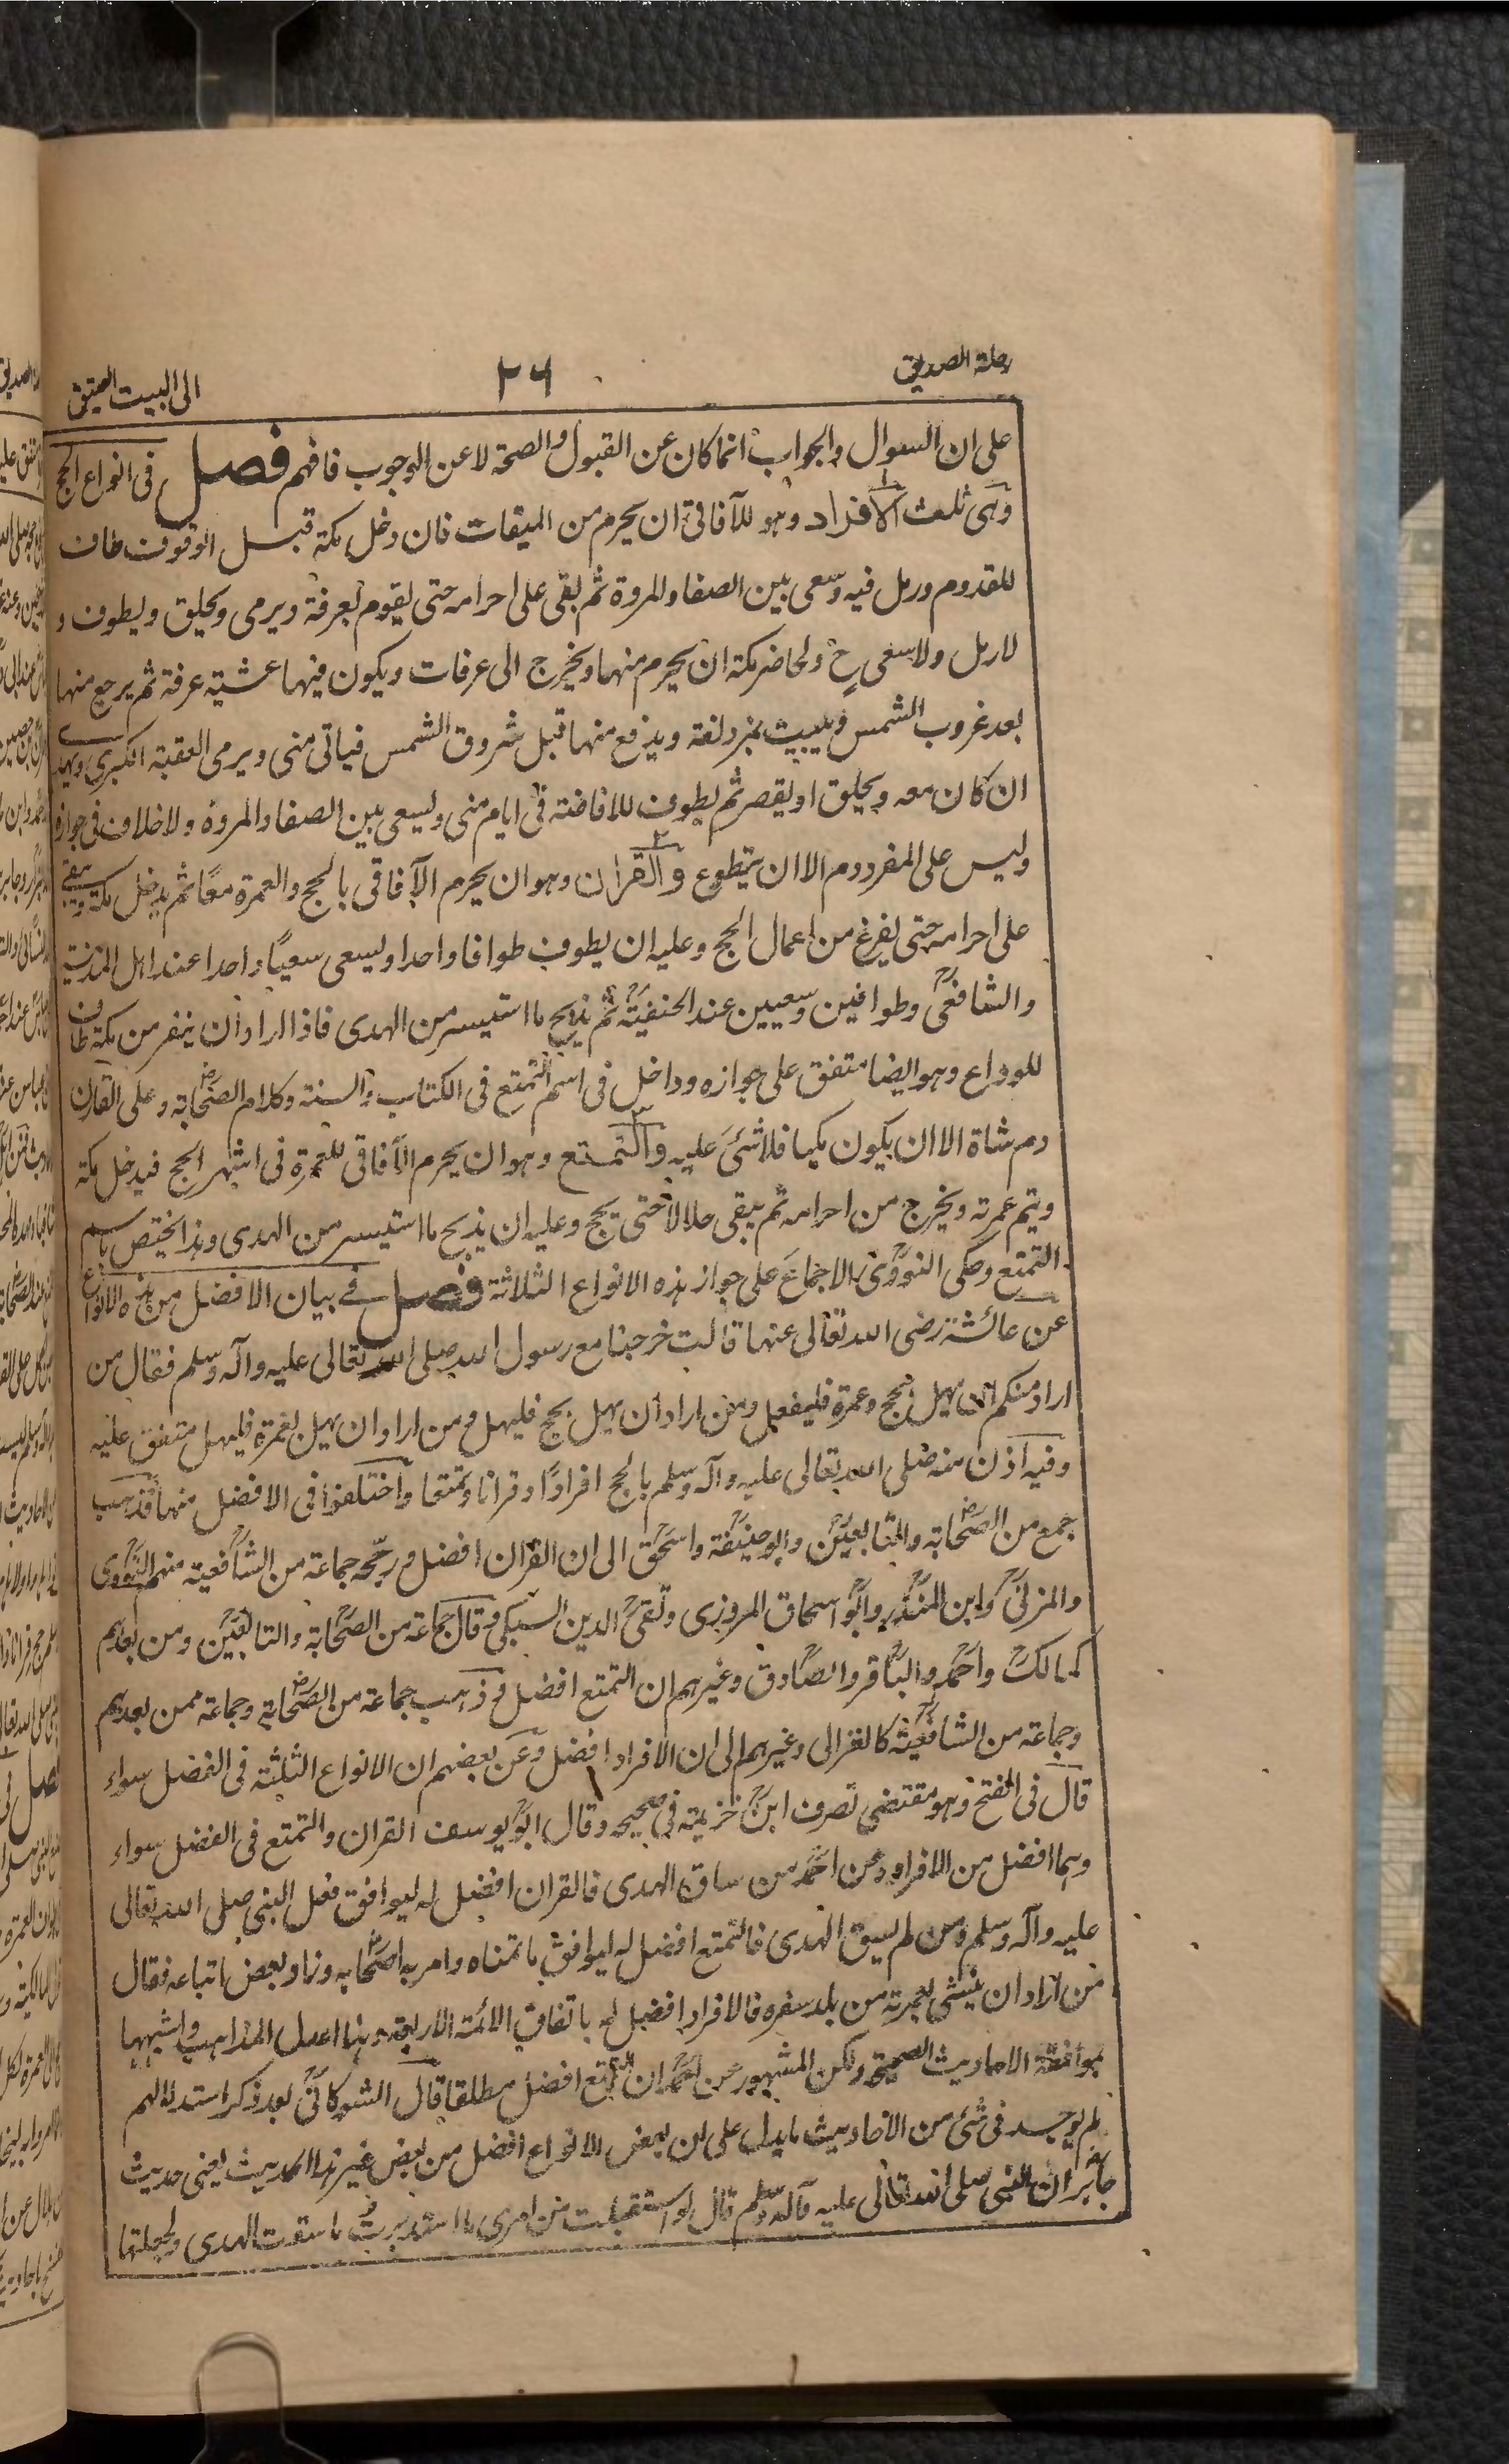 رحلة الصديق
٢٦
الى البيت العتيق
على ان السوال والجواب انما كان عن القبول والصحة لا عن الوجوب فافهم فصل فى انواع الحج
وهى ثلث الافراد وهو للآفاقى ان يحرم من الميقات فان دخل مكة قبل الوقوف طاف
للقدوم ورمل فيه وسعى بين الصفا والمروة ثم بقى على احرامه حتى يقوم بعرفة ويرمى ويحلق ويطوف و
لا رمل ولا سعى ح ولحاضر مكة ان يحرم منها ويخرج الى عرفات ويكون فيها عشية عرفة ثم يرجع منها
بعد غروب الشمس ويبيت بمزدلفة ويدفع منها قبل شروق الشمس فياتى منى ويرمى العقبة الكبرى ويهدى
ان كان معه ويحلق او يقصر ثم يطوف للافاضة فى ايام منى ويسعى بين الصفا والمروة ولا خلاف فى جوازه
وليس على المفرد دم الا ان يتطوع و القران وهو ان يحرم الآفاقى بالحج والعمرة معًا ثم يدخل مكة ويبقى
على احرامه حتى يفرغ من اعمال الحج وعليه ان يطوف طوافا واحدا ويسعى سعيًا واحدا عند اهل المدينة
والشافعى وطوافين وسعيين عند الحنفية ثم يذبح ما استيسر من الهدى فاذا اراد ان ينفر من مكة طاف
للوداع وهو ايضا متفق على جوازه وداخل فى اسم التمتع فى الكتاب والسنة وكلام الصحابة وعلى القارن
دم شاة الا ان يكون مكيا فلا شئ عليه و التمتع وهو ان يحرم الآفاقى للعمرة فى اشهر الحج فيدخل مكة
ويتم عمرته ويخرج من احرامه ثم يبقى حلالا حتى يحج وعليه ان يذبح ما استيسر من الهدى وهذا يختص باسم
التمتع وحكى النووى الاجماع على جواز هذه الانواع الثلاثة فصل فى بيان الافضل من هذه الانواع
عن عائشة رضى الله تعالى عنها قالت خرجنا مع رسول الله صلى الله تعالى عليه وآله وسلم فقال من
اراد منكم ان يهل بحج وعمرة فليفعل ومن اراد ان يهل بحج فليهل ومن اراد ان يهل بعمرة فليهل متفق عليه
وفيه اذن منه صلى الله تعالى عليه وآله وسلم بالحج افرادًا وقرانا وتمتعا واختلفوا فى الافضل منها فذهب
جمع من الصحابة والتابعين وابو حنيفة واسحق الى ان القران افضل ورجحه جماعة من الشافعية منهم النووى
والمزنى وابن المنذر وابو اسحاق المروزى وتقى الدين السبكى وقال جماعة من الصحابة والتابعين ومن بعدهم
كمالك واحمد والباقر والصادق وغيرهم ان التمتع افضل وذهب جماعة من الصحابة وجماعة ممن بعدهم
وجماعة من الشافعية كالغزالى وغيرهم الى ان الافراد افضل وعن بعضهم ان الانواع الثلثة فى الفضل سواء
قال فى الفتح وهو مقتضى تصرف ابن خزيمة فى صحيحه وقال ابو يوسف القران والتمتع فى الفضل سواء
وهما افضل من الافراد وعن احمد من ساق الهدى فالقران افضل له ليوافق فعل النبى صلى الله تعالى
عليه وآله وسلم ومن لم يسق الهدى فالتمتع افضل له ليوافق ما تمناه وامر به اصحابه وزاد بعض اتباعه فقال
من اراد ان ينشئ لعمرته من بلد سفره فالافراد افضل له باتفاق الائمة الاربعة وهذا اعدل المذاهب واشبهها
بموافقة الاحاديث الصحيحة ولكن المشهور عن احمد ان التمتع افضل مطلقا قال الشوكانى بعد ذكر استدلالهم
لم يوجد فى شئ من الاحاديث ما يدل على ان بعض الانواع افضل من بعض غير هذا الحديث يعنى حديث
جابر ان النبى صلى الله تعالى عليه وآله وسلم قال لو استقبلت من امرى ما استدبرت ما سقت الهدى ولجعلتها